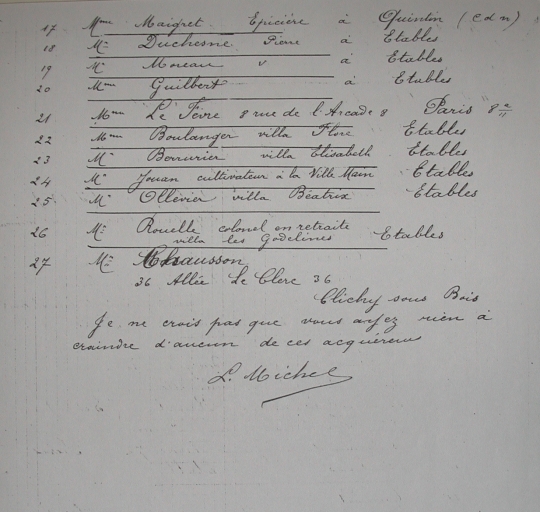 17 Mme Maigret Epicière à Quintin (C d n)
18 Mr Duchesne Pierre à Etables
19 Mr Moreau " à Etables
20 Mme Guilbert à Etables
21 Mme Le Fèvre 8 rue de l'Arcade 8 Paris 8e
22 Mme Boulanger villa Flore Etables
23 Mr Berrurier villa Elisabeth Etables
24 Mr Jouan cultivateur à la Ville Main Etables
25 Mr Ollivier villa Béatrix Etables
26 Mr Rouelle colonel en retraite
villa les Godelines Etables
27 Mr Chausson
36 Allée Le Clerc 36
Clichy sous Bois
Je ne crois pas que vous ayez rien à
craindre d'aucun de ces acquéreurs
L. Michel